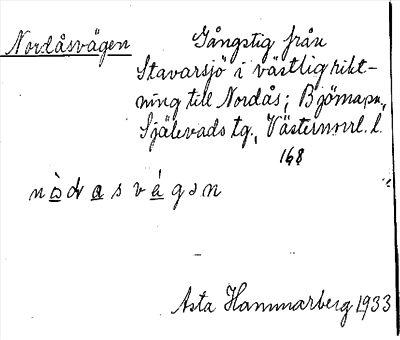 Nordåsvägen
Gångstig från
Stavarsjö i västlig rikt-
ning till Nordås; Björnapn.,
Själevads tg., Västernorrl. l.
168
Asta Hammarberg 1933